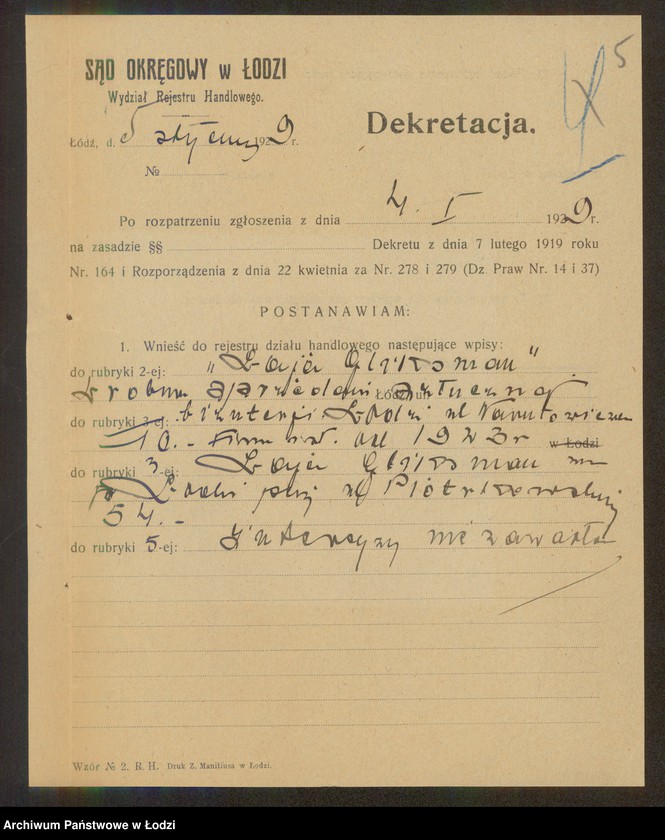 SĄD OKRĘGOWY w ŁODZI
Wydział Rejestru Handlowego.
Łódź, d. 5 stycznia 1929 r.
№
5
Dekretacja.
Po rozpatrzeniu zgłoszenia z dnia 4. I 1929 r.
na zasadzie §§ Dekretu z dnia 7 lutego 1919 roku
Nr. 164 i Rozporządzenia z dnia 22 kwietnia za Nr. 278 i 279 (Dz Praw Nr. 14 i 37)
POSTANAWIAM:
1. Wnieść do rejestru działu handlowego następujące wpisy:
do rubryki 2-ej: „Łaja Gliksman"
Drobna sprzedaż sztucznej
do rubryki 3-ej: biżuterji Łodzi ul Narutowicza
10.- Firma istn. od 1923 r w Łodzi
do rubryki 3-ej: Łaja Gliksman
w Łodzi przy ul Piotrkowskiej
54.-
do rubryki 5-ej: Intercyzy nie zawarła
Wzór № 2. R. H. Druk Z. Manitiusa w Łodzi.
Archiwum Państwowe w Łodzi